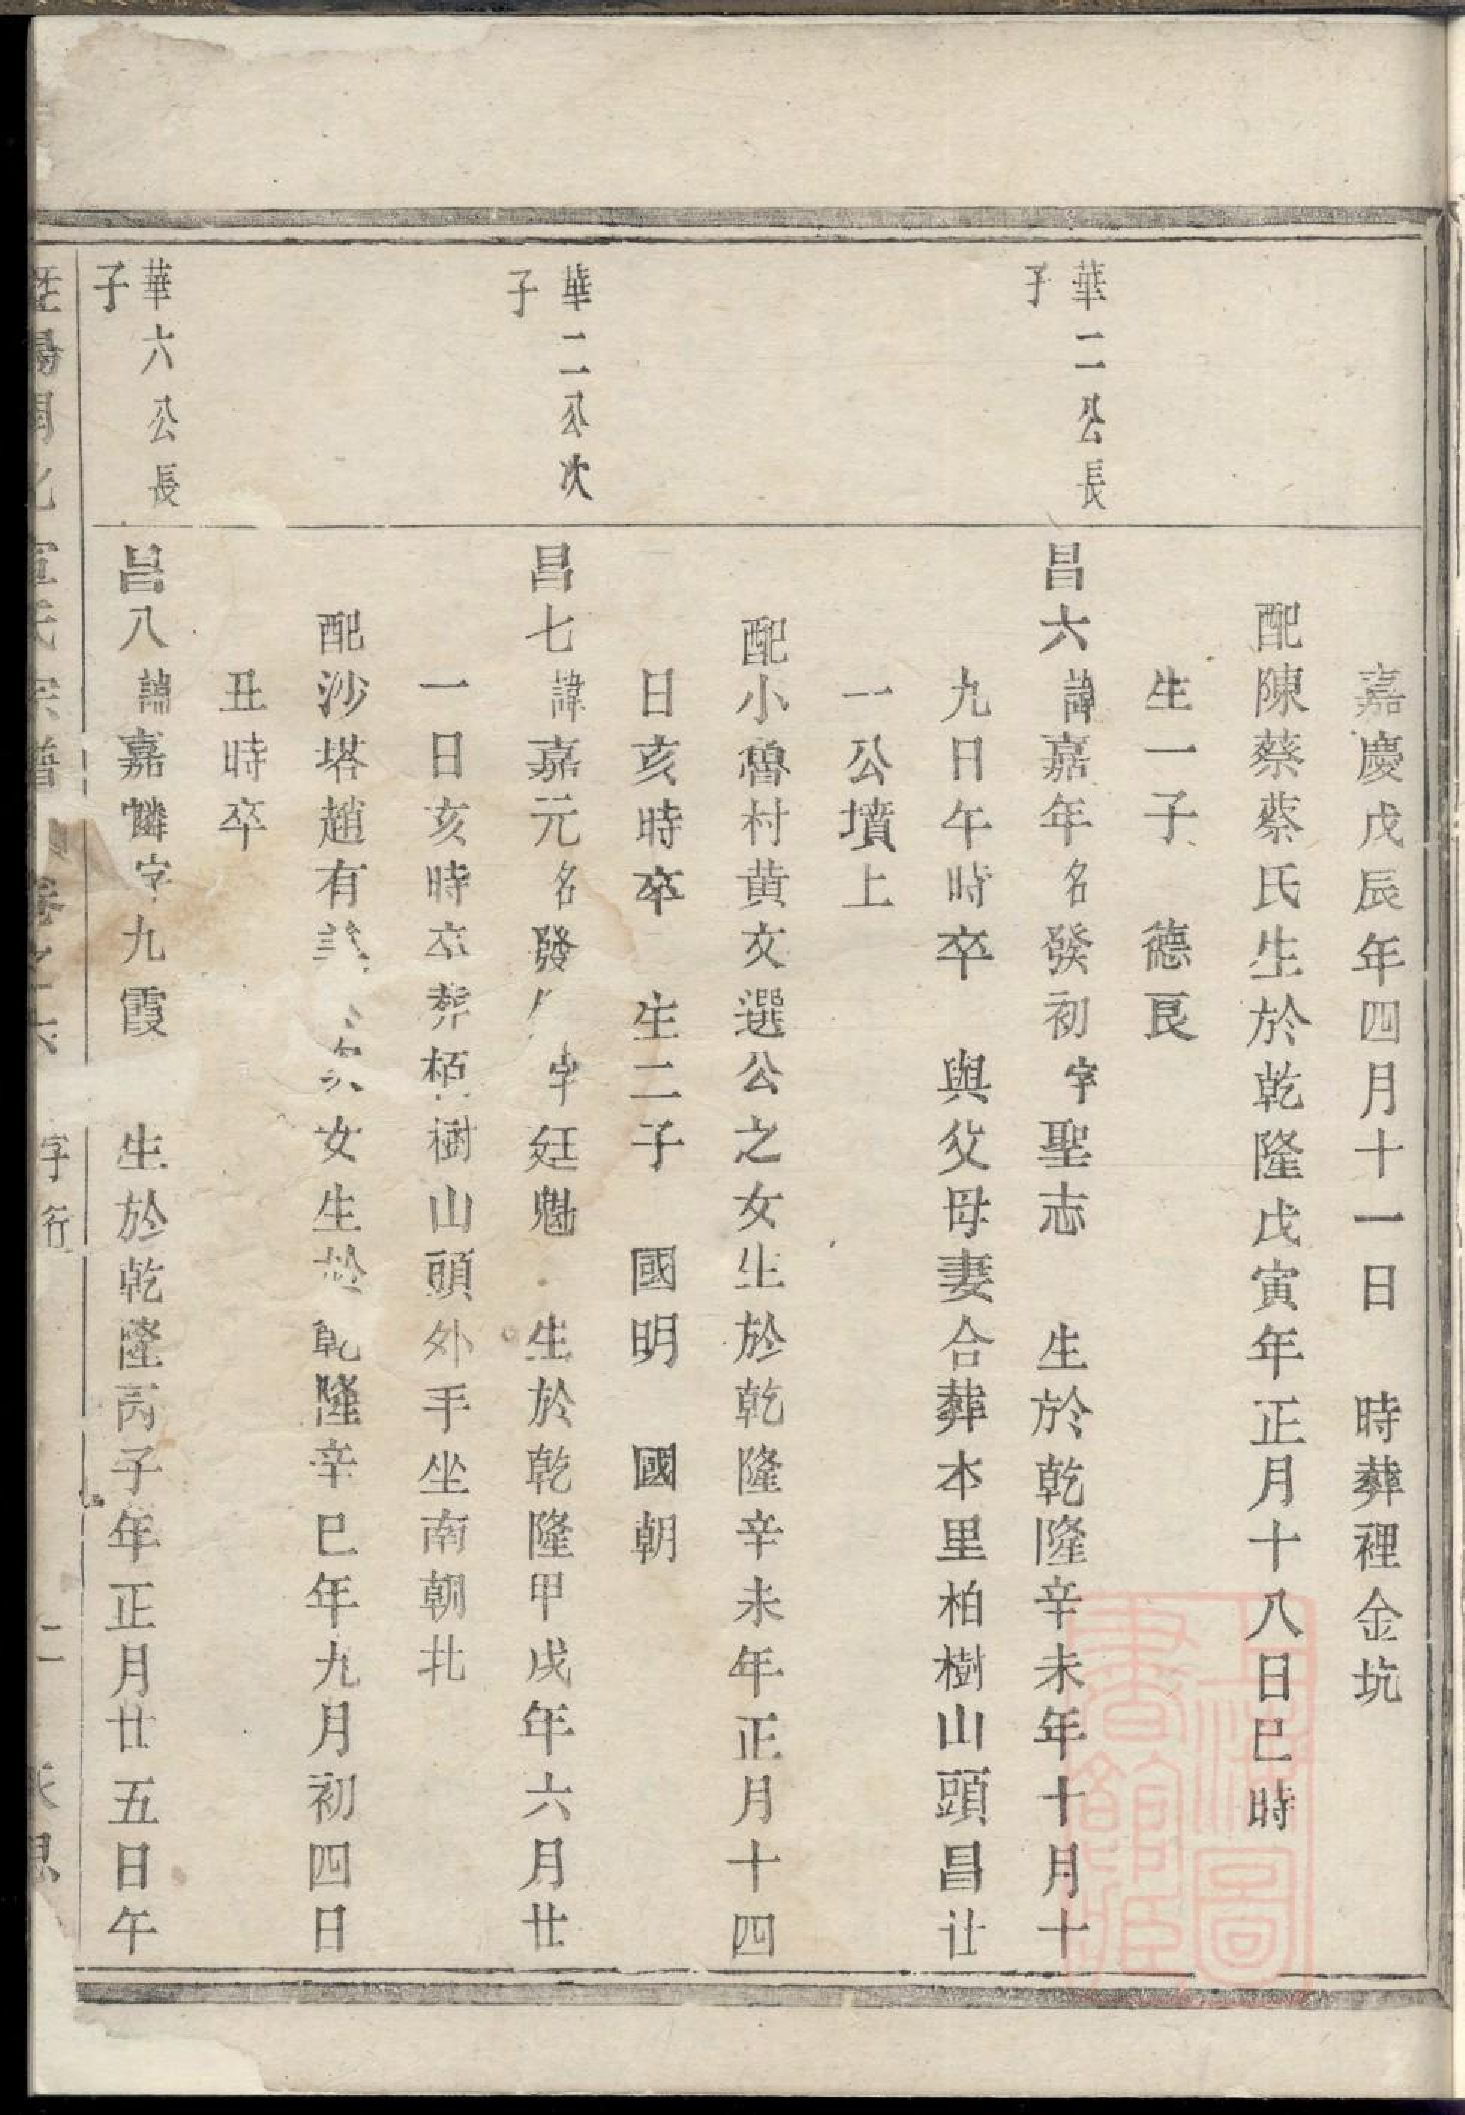 嘉慶戊辰年四月十一日 時葬裡金坑
配陳蔡蔡氏生於乾隆戊寅年正月十八日巳時
生一子 德良
華二公長
子
昌六諱嘉年名發初字聖志 生於乾隆辛未年十月十
九日午時卒 與父母妻合葬本里柏樹山頭昌廿
一公墳上
配小魯村黄文選公之女生於乾隆辛未年正月十四
日亥時卒 生二子 國明 國朝
華二公次
子
昌七諱嘉元名發 字廷魁 生於乾隆甲戌年六月廿
一日亥時卒葬栢樹山頭外手坐南朝北
配沙塔趙有 女生於乾隆辛巳年九月初四日
丑時卒
華六公長
子
昌八諱嘉麟字九霞 生於乾隆丙子年正月廿五日午
暨陽開化宣氏宗譜 卷之六 字行 二 永思